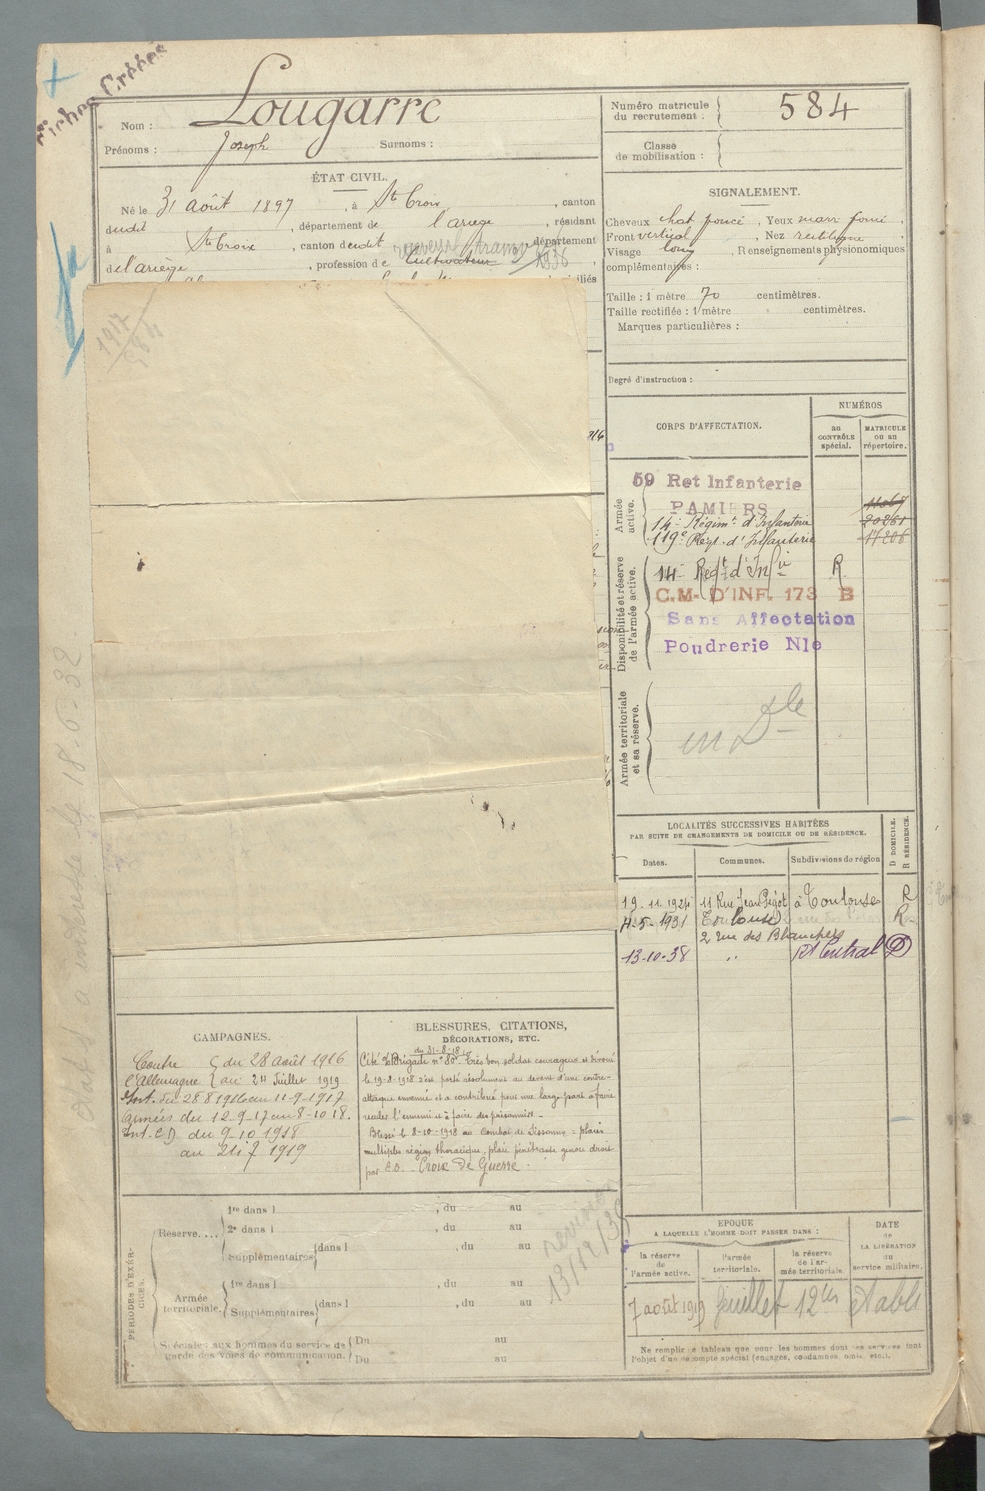 Fiches Créées
Nom : Lougarre
Prénoms : Joseph Surnoms :
Numéro matricule
du recrutement : 584
Classe
de mobilisation :
ÉTAT CIVIL.
Né le 31 août 1897, à Ste Croix, canton
dudit, département de l'ariege, résidant
à Ste Croix, canton dudit département
de l'ariège, profession de Cultivateur
1936
SIGNALEMENT.
Cheveux chat foncé, Yeux marr foncé,
Front vertical, Nez rectiligne,
Visage long, Renseignements physionomiques
complémentaires :
Taille : 1 mètre 70 centimètres.
Taille rectifiée : 1 mètre centimètres.
Marques particulières :
Degré d'instruction :
1917
584
CORPS D'AFFECTATION.
NUMÉROS
au
CONTRÔLE
spécial.
MATRICULE
ou au
répertoire.
Armée
active.
59 Ret Infanterie
PAMIERS
14e Régimt d'Infanterie 20861
119e Régt d'Infanterie 17206
Disponibilité et réserve
de l'armée active.
14e Regt d'Infie R
C.M. D'INF. 173 B
Sans Affectation
Poudrerie Nle
Armée territoriale
et sa réserve.
LOCALITÉS SUCCESSIVES HABITÉES
PAR SUITE DE CHANGEMENTS DE DOMICILE OU DE RÉSIDENCE.
Dates. Communes. Subdivisions de région
D DOMICILE.
R RÉSIDENCE.
19.11.1924 11 Rue Jean Pigot à Toulouse R
4-5-1931 Toulouse R
2 rue des Blanchers
13-10-38 " Rt Central D
CAMPAGNES.
Contre du 28 août 1916
l'Allemagne au 24 Juillet 1919
Int. du 28 8 1916 au 11-9-1917
Armées du 12-9-17 au 8-10 18.
Int. C.D du 9-10 1918
au 21 7 1919
BLESSURES, CITATIONS,
DÉCORATIONS, ETC.
du 31-8-18
Cité Brigade n° 80. Très bon soldat courageux et dévoué
le 19-8-1918 s'est porté résolument au devant d'une contre-
attaque ennemie et a contribué pour une large part à faire
reculer l'ennemi et à faire des prisonniers.
Blessé le 8-10-1918 au Combat de Sissonne = plaies
multiples région thoracique, plaie pénétrante genou droit
par E.O. Croix De Guerre.
PÉRIODES D'EXERCICES.
Réserve....
1re dans l , du au
2e dans l , du au
Supplémentaires dans l , du au
Armée
territoriale.
1re dans l , du au
Supplémentaires dans l , du au
Spéciales aux hommes du service de
garde des voies de communication.
Du au
Du au
13/12/38
EPOQUE
A LAQUELLE L'HOMME DOIT PASSER DANS :
la réserve
de
l'armée active.
l'armée
territoriale.
la réserve
de l'ar-
mée territoriale.
DATE
de
LA LIBÉRATION
du
service militaire.
7 août 1919
Ne remplir ce tableau que pour les hommes dont les services font
l'objet d'un décompte spécial (engagés, condamnés, omis, etc.).